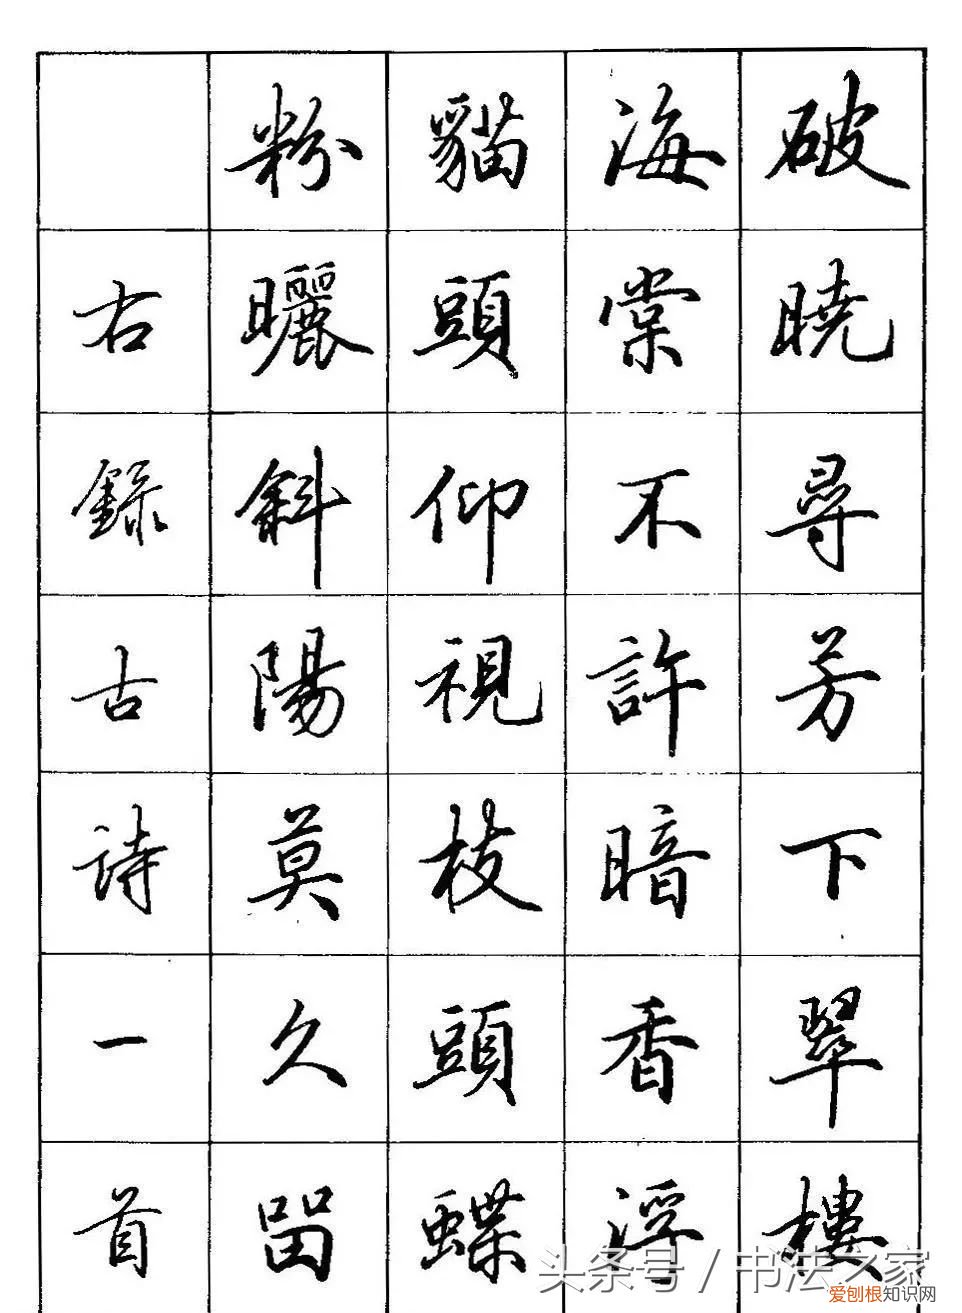 破曉尋芳下翠樓
海棠不許暗香浮
貓頭仰視枝頭蝶
粉曬斜陽莫久留
右錄古詩一首
头条号 / 书法之家
爱刨根知识网